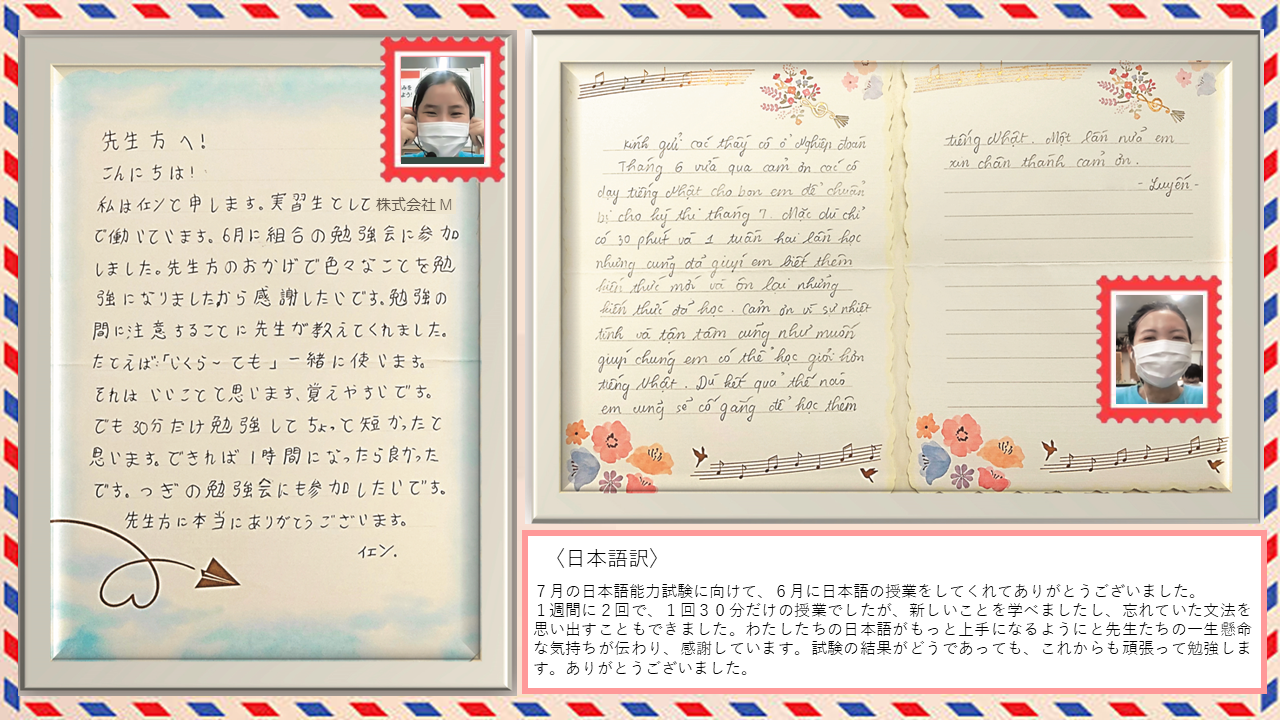 先生方へ!
こんにちは!
私はイェンと申します。実習生として株式会社M
で働いています。6月に組合の勉強会に参加
しました。先生方のおかげで色々なことを勉
強になりましたから感謝したいです。勉強の
間に注意することに先生が教えてくれました。
たとえば「いくら~ても」一緒に使います。
それはいいことと思います、覚えやすいです。
でも30分だけ勉強してちょっと短かったと
思います。できれば1時間になったら良かった
です。つぎの勉強会にも参加したいです。
先生方に本当にありがとうございます。
イェン.
kính gửi các thầy cô ở Nghiệp đoàn
Tháng 6 vừa qua cảm ơn các cô
dạy tiếng Nhật cho bọn em để chuẩn
bị cho kỳ thi tháng 7. Mặc dù chỉ
có 30 phút và 1 tuần hai lần học
nhưng cũng đã giúp em biết thêm
kiến thức mới và ôn lại những
kiến thức đã học. Cảm ơn vì sự nhiệt
tình và tận tâm cũng như muốn
giúp chúng em có thể học giỏi hơn
tiếng Nhật. Dù kết quả thế nào
em cũng sẽ cố gắng để học thêm
tiếng Nhật. Một lần nữa em
xin chân thành cảm ơn.
- Luyến -
〈日本語訳〉
７月の日本語能力試験に向けて、６月に日本語の授業をしてくれてありがとうございました。
１週間に２回で、１回３０分だけの授業でしたが、新しいことを学べましたし、忘れていた文法を
思い出すこともできました。わたしたちの日本語がもっと上手になるようにと先生たちの一生懸命
な気持ちが伝わり、感謝しています。試験の結果がどうであっても、これからも頑張って勉強しま
す。ありがとうございました。